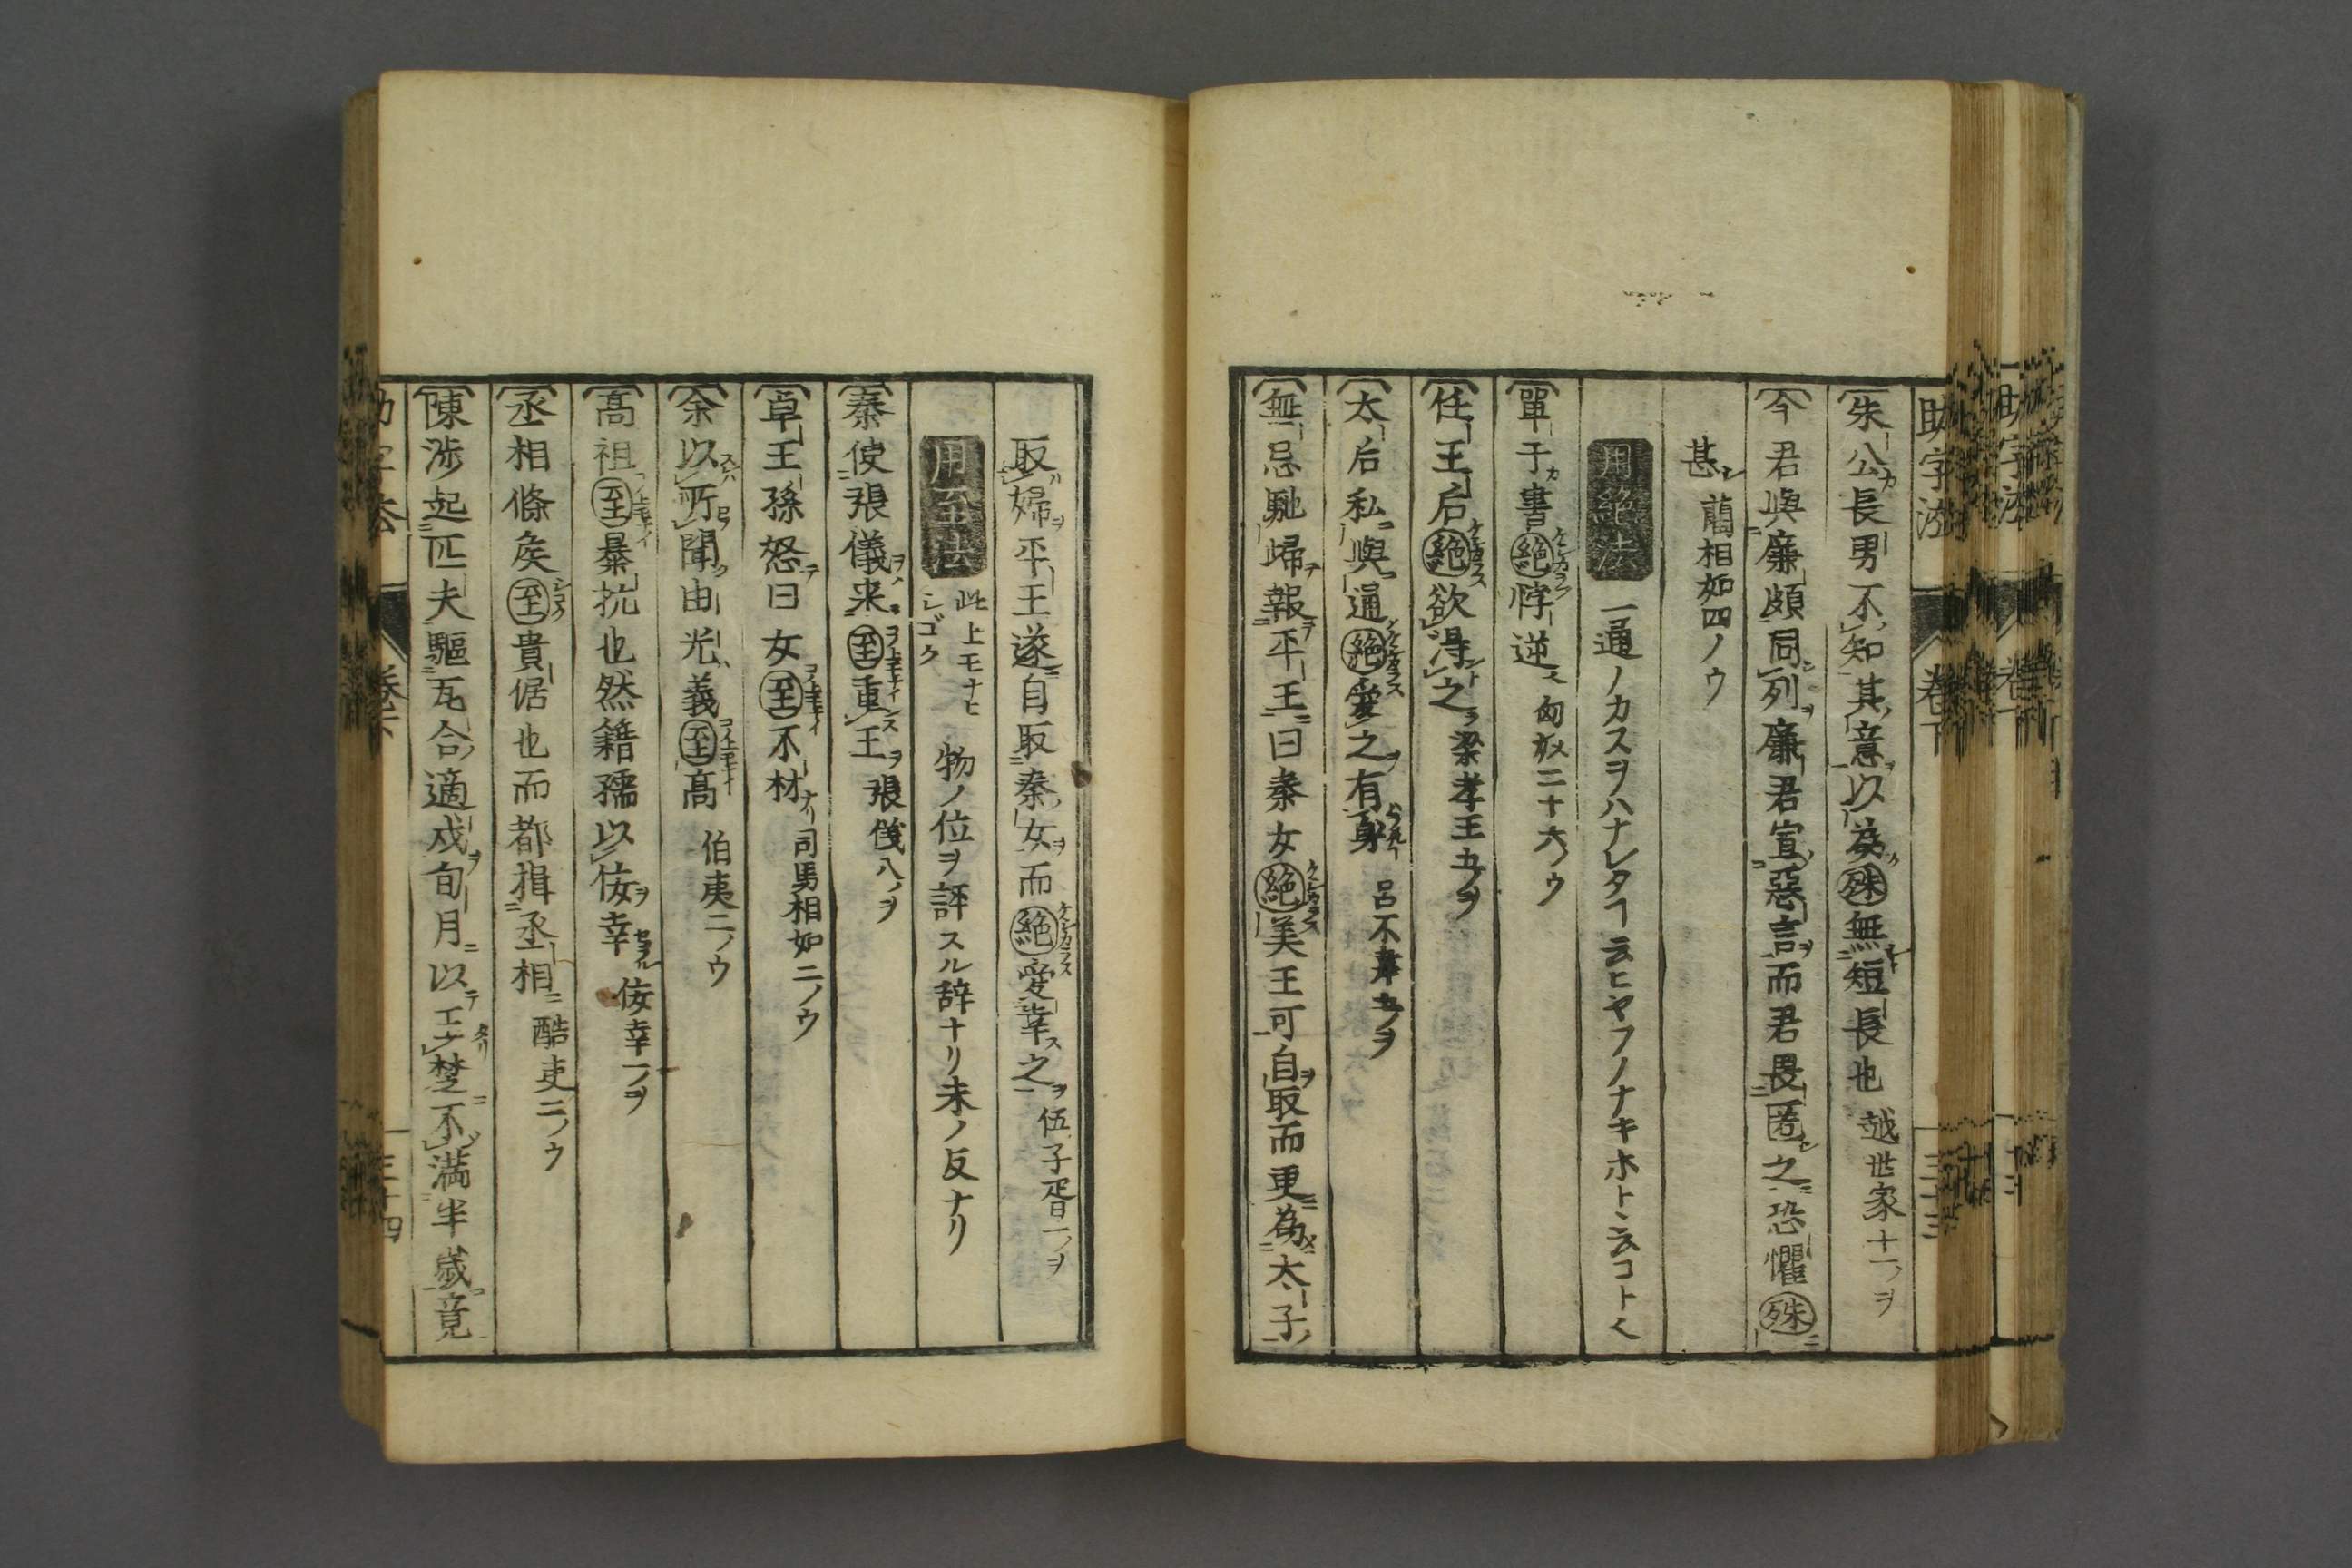 助字法 卷下 三十三
朱公長男不知其意以為殊無短長也 越世家十一ノヲ
今君與廉頗同列廉君宣惡言而君畏匿之恐懼殊
甚 藺相如四ノウ
用絶法 一通ノカスヲハナレタヿ云ヒヤフノナキホト云コト
單于書絶悖逆 匈奴二十六ノウ
任王后絶欲得之 梁孝王五ノヲ
太后私與通絶愛之有身 呂不韋五ノヲ
無忌馳歸報平王曰秦女絶美王可自取而更為太子
取婦平王遂自取秦女而絶愛幸之 伍子胥一ノヲ
用至法 此上モナヒ シゴク 物ノ位ヲ評スル辞ナリ未ノ反ナリ
秦使張儀来至重王 張儀八ノヲ
卓王孫怒曰女至不材 司馬相如二ノウ
余以所聞由光義至髙 伯夷二ノウ
髙祖至暴抗也然籍孺以佞幸 佞幸一ノヲ
丞相條矦至貴倨也而都揖丞相 酷吏二ノウ
陳渉起匹夫驅瓦合適戍旬月以王楚不満半歳竟
卷下 三十四